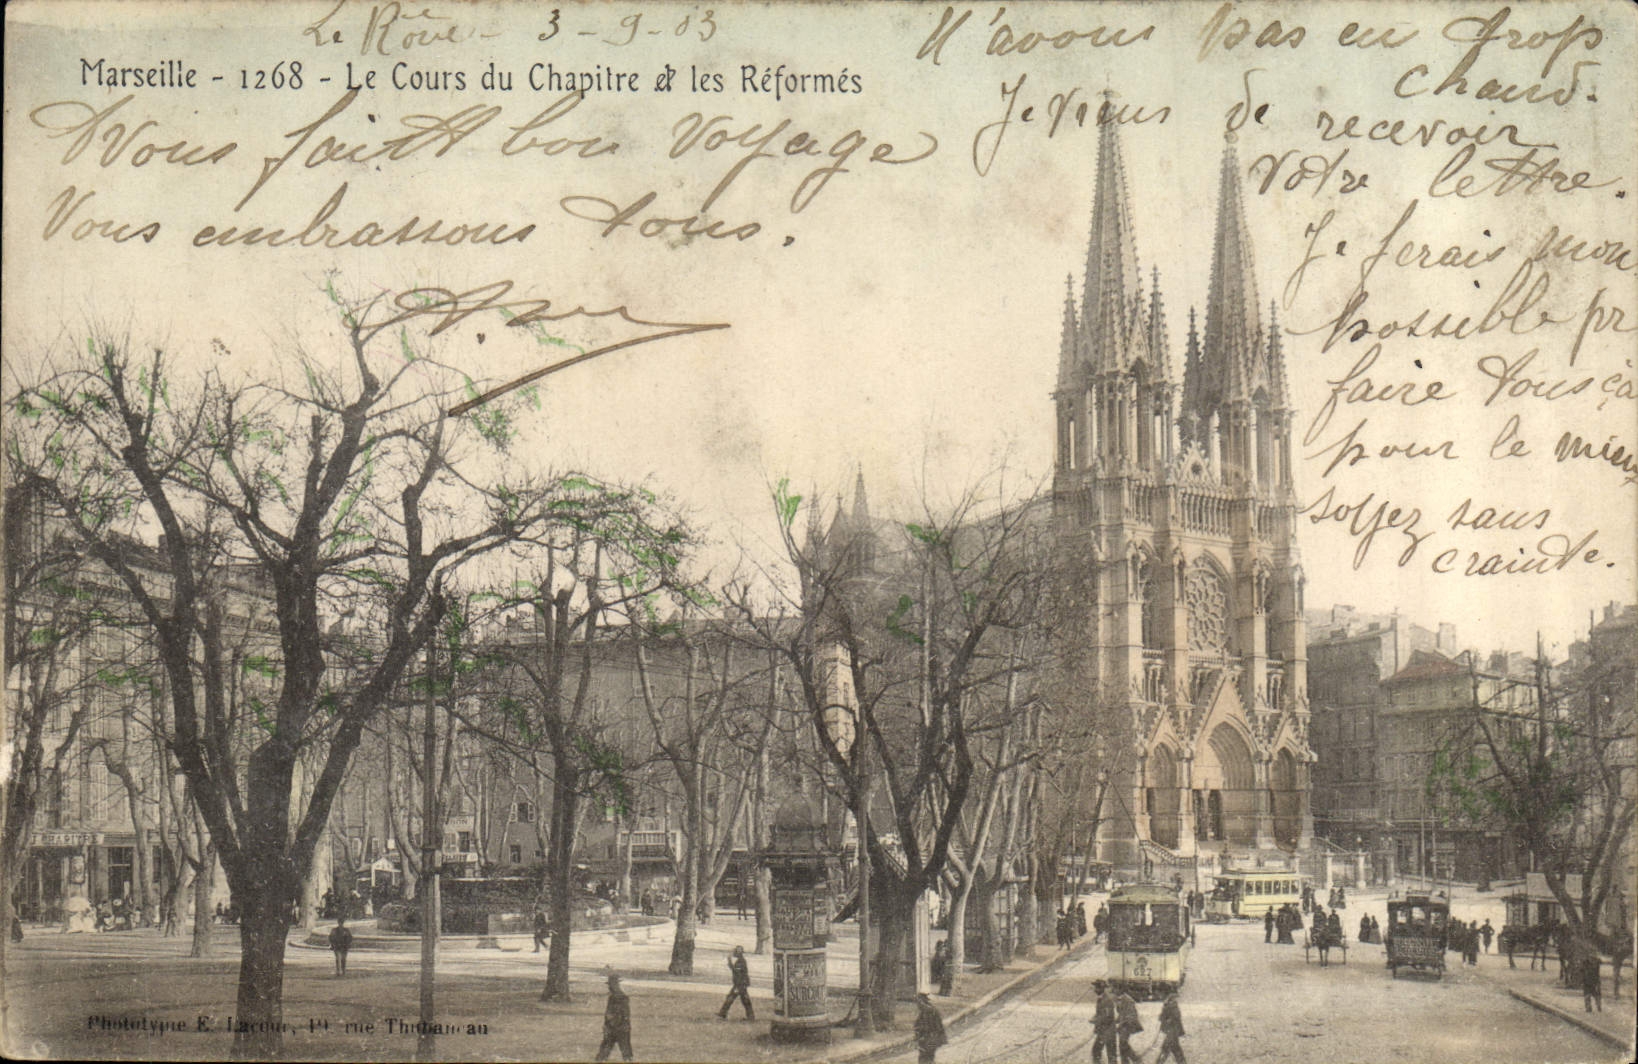 Le Rôve - 3 - 9 - 03
Marseille - 1268 - Le Cours du Chapitre et les Réformés
Avons fait bon voyage
Vous embrassons tous.
N'avons pas eu trop
chaud.
Je viens de recevoir
votre lettre.
Je ferais mon
possible pr
faire tous ça
pour le mieux
soyez sans
crainte.
627
Phototypie E. Lacour, rue Thubaneau